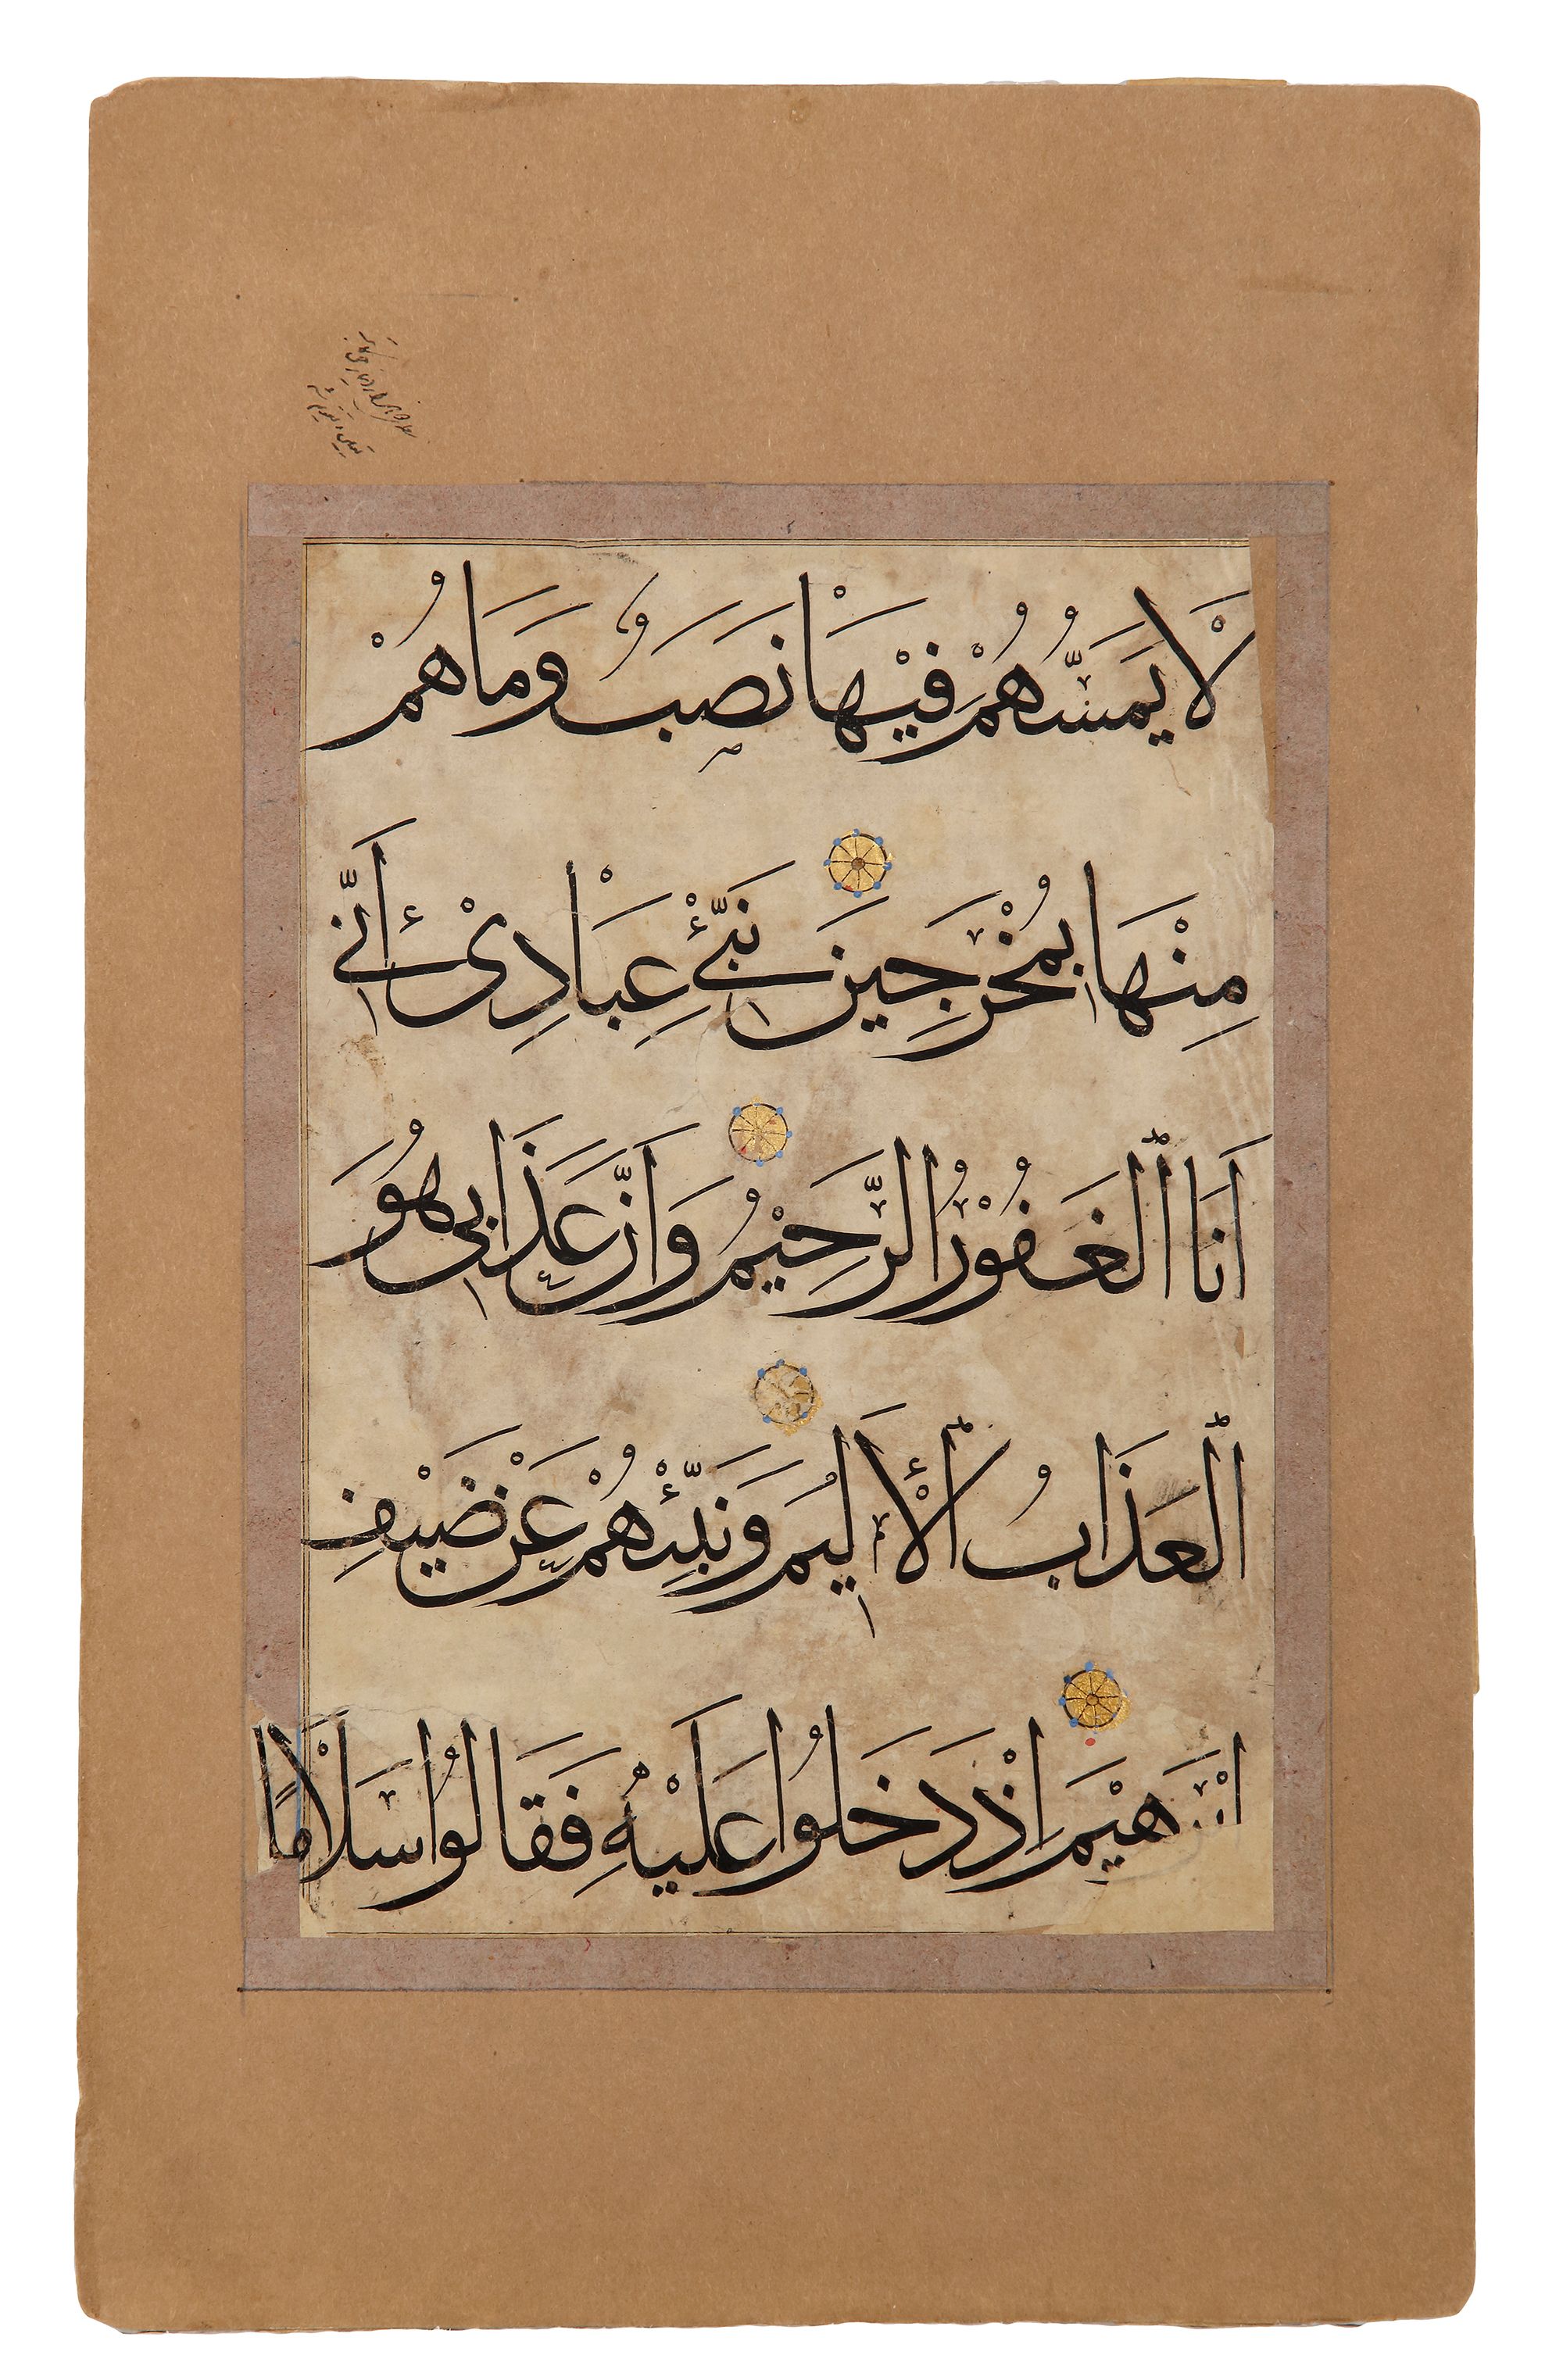 لَا يَمَسُّهُمْ فِيْهَا نَصَبٌ وَمَا هُمْ
مِنْهَا بِمُخْرَجِينَ نَبِّئْ عِبَادِىْ أَنِّي
اَنَا الْغَفُوْرُ الرَّحِيْمُ وَاَنَّ عَذَابِي هُوَ
الْعَذَابُ الْأَلِيمُ وَنَبِّئْهُمْ عَنْ ضَيْفِ
هِيْمَ اِذْ دَخَلُوا عَلَيْهِ فَقَالُوا سَلَامًا